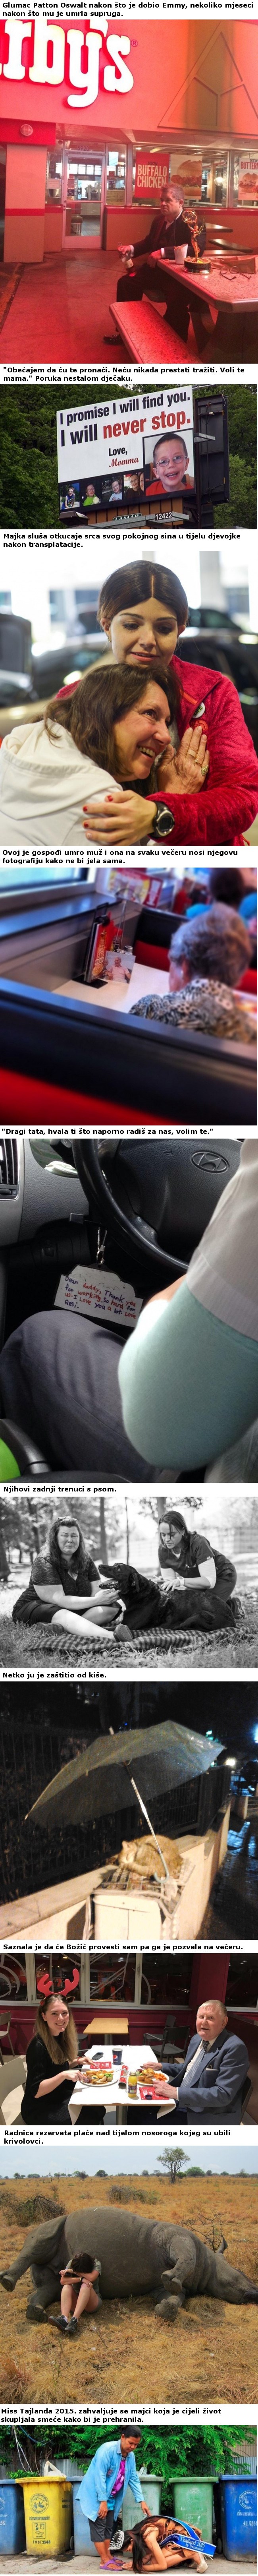 Glumac Patton Oswalt nakon što je dobio Emmy, nekoliko mjeseci
nakon što mu je umrla supruga.
rby's
BUFFALO
CHICKEN
"Obećajem da ću te pronaći. Neću nikada prestati tražiti. Voli te
mama." Poruka nestalom dječaku.
I promise I will find you.
I will never stop.
Love,
Momma
Majka sluša otkucaje srca svog pokojnog sina u tijelu djevojke
nakon transplatacije.
Ovoj je gospođi umro muž i ona na svaku večeru nosi njegovu
fotografiju kako ne bi jela sama.
"Dragi tata, hvala ti što naporno radiš za nas, volim te."
Dear daddy, Thank you
for working so hard for
us. I Love you a lot. Love
Njihovi zadnji trenuci s psom.
Netko ju je zaštitio od kiše.
Saznala je da će Božić provesti sam pa ga je pozvala na večeru.
Radnica rezervata plače nad tijelom nosoroga kojeg su ubili
krivolovci.
Miss Tajlanda 2015. zahvaljuje se majci koja je cijeli život
skupljala smeće kako bi je prehranila.